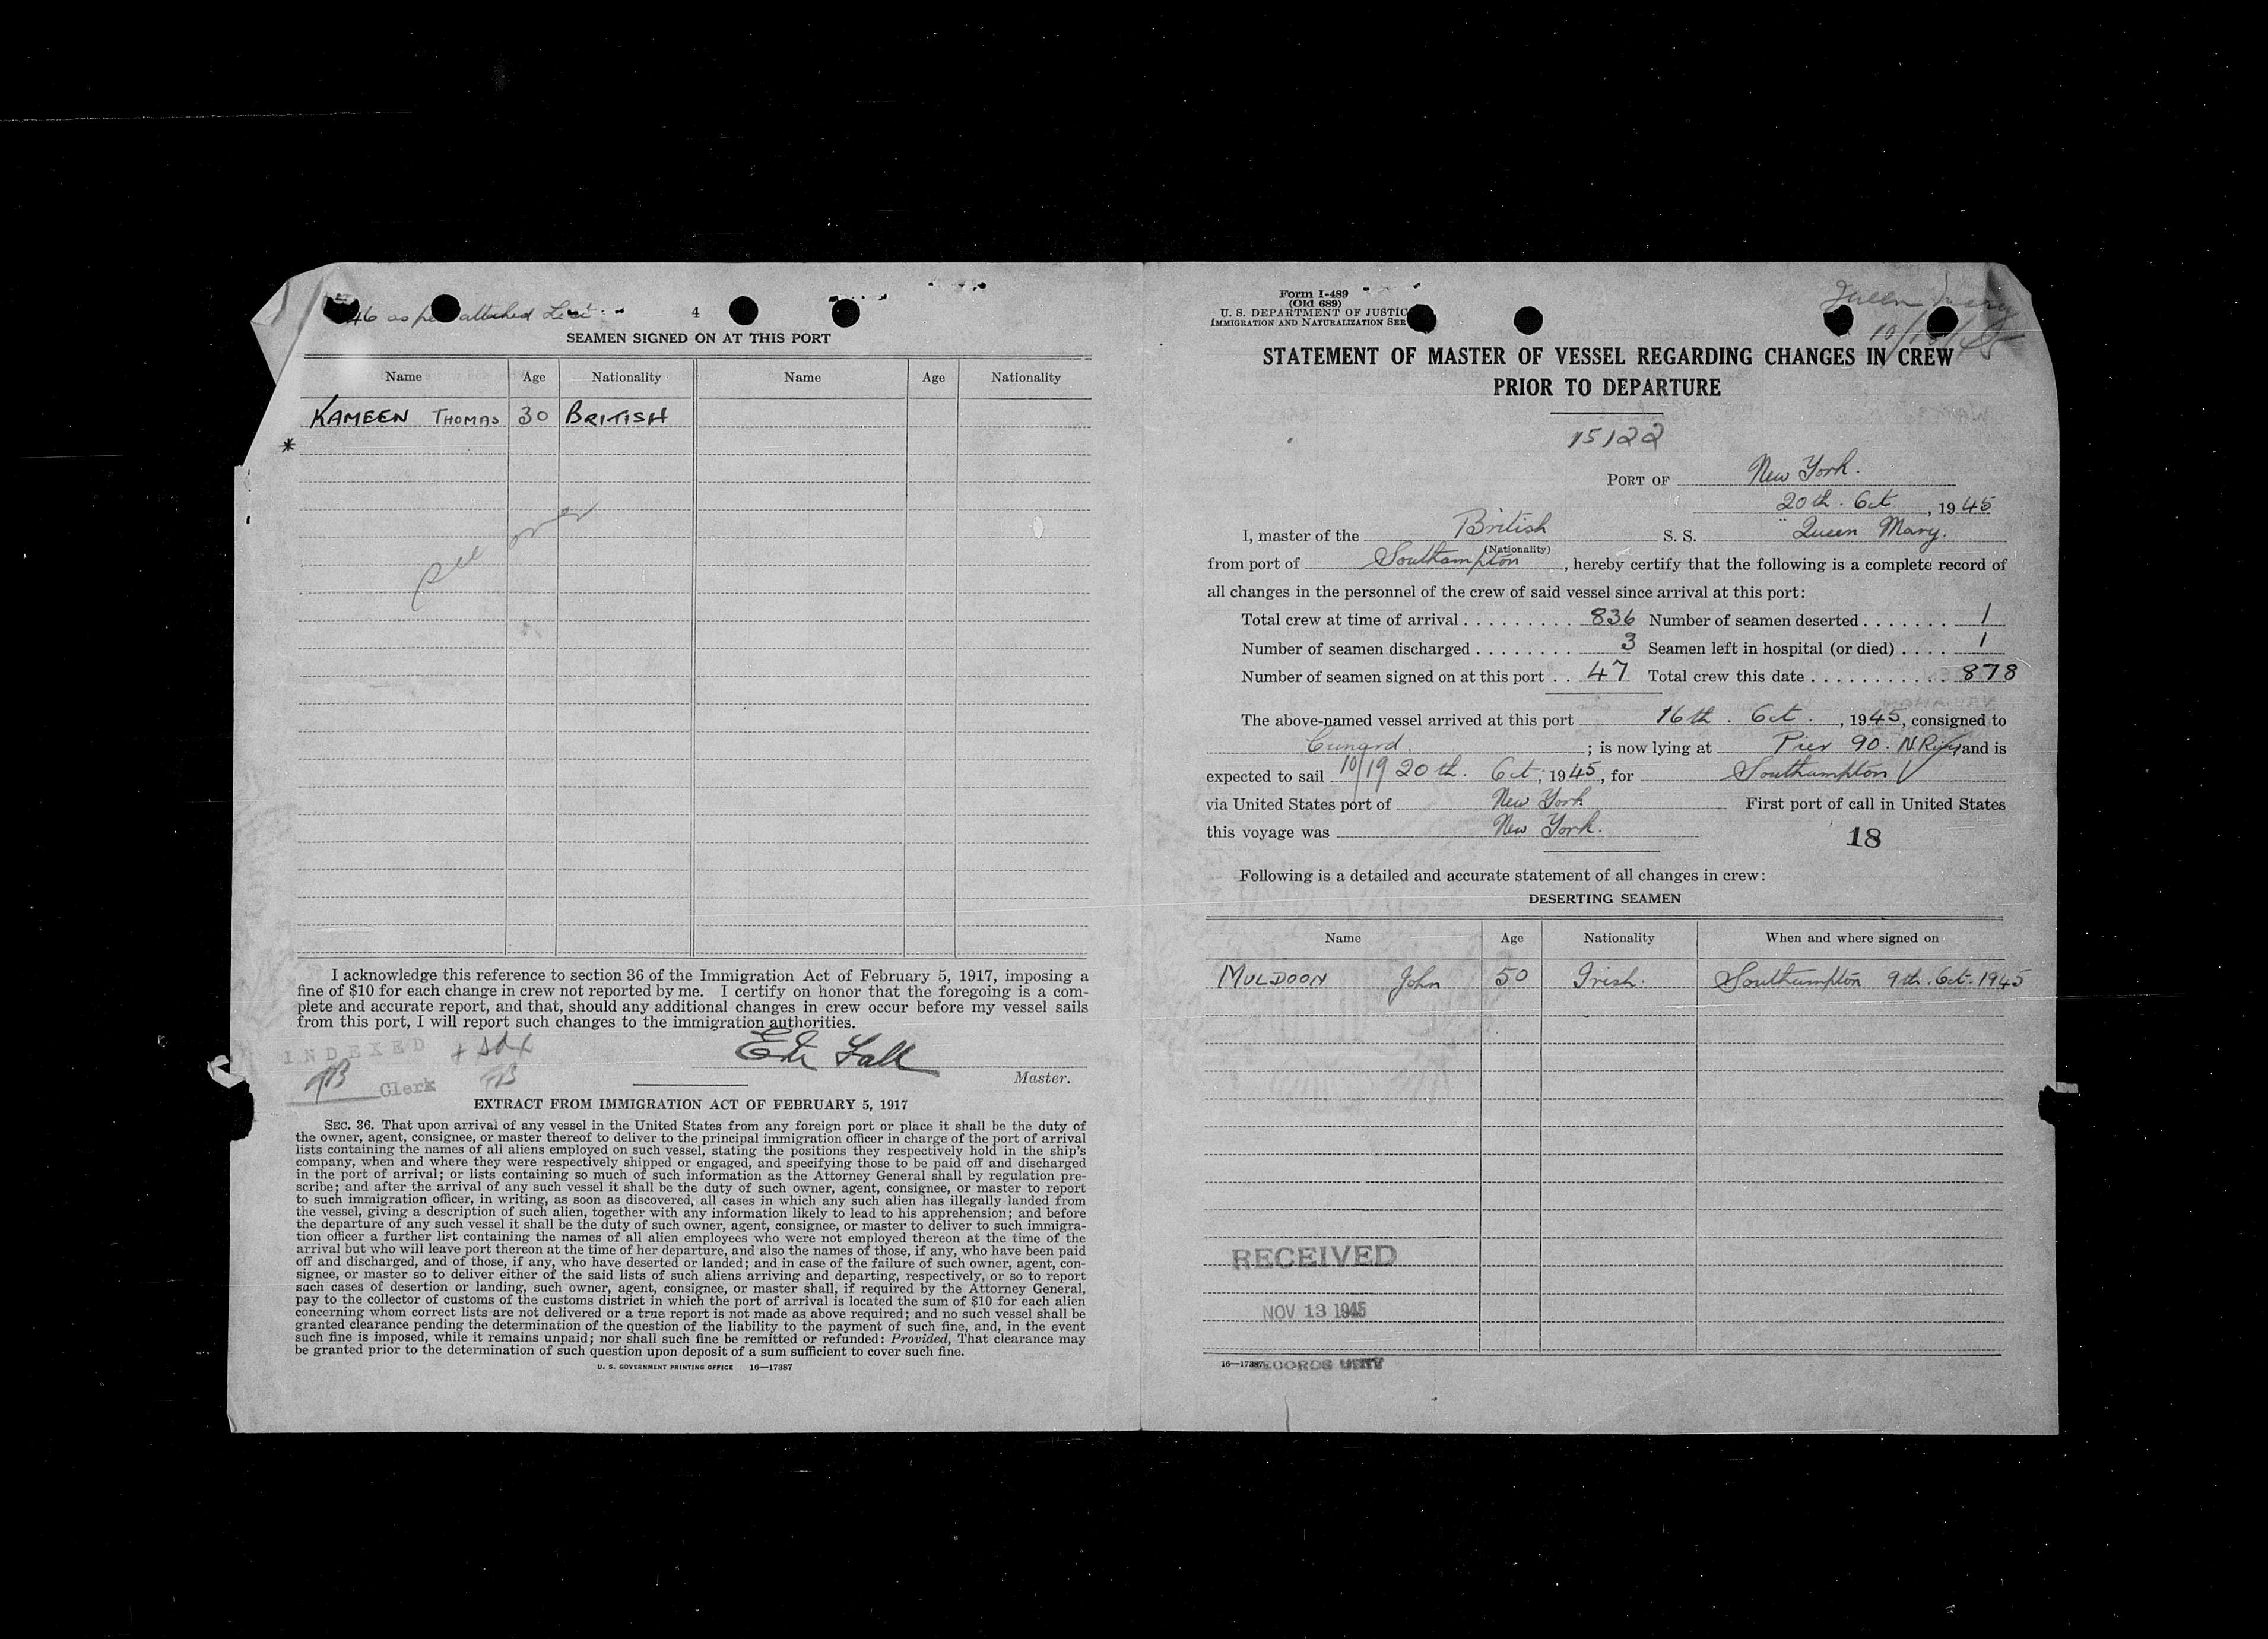 46 as per attached List
4
SEAMEN SIGNED ON AT THIS PORT
Name Age Nationality Name Age Nationality
KAMEEN THOMAS 30 BRITISH
*
see over
I acknowledge this reference to section 36 of the Immigration Act of February 5, 1917, imposing a
fine of $10 for each change in crew not reported by me. I certify on honor that the foregoing is a com-
plete and accurate report, and that, should any additional changes in crew occur before my vessel sails
from this port, I will report such changes to the immigration authorities.
INDEXED
Clerk
Master.
EXTRACT FROM IMMIGRATION ACT OF FEBRUARY 5, 1917
SEC. 36. That upon arrival of any vessel in the United States from any foreign port or place it shall be the duty of
the owner, agent, consignee, or master thereof to deliver to the principal immigration officer in charge of the port of arrival
lists containing the names of all aliens employed on such vessel, stating the positions they respectively hold in the ship's
company, when and where they were respectively shipped or engaged, and specifying those to be paid off and discharged
in the port of arrival; or lists containing so much of such information as the Attorney General shall by regulation pre-
scribe; and after the arrival of any such vessel it shall be the duty of such owner, agent, consignee, or master to report
to such immigration officer, in writing, as soon as discovered, all cases in which any such alien has illegally landed from
the vessel, giving a description of such alien, together with any information likely to lead to his apprehension; and before
the departure of any such vessel it shall be the duty of such owner, agent, consignee, or master to deliver to such immigra-
tion officer a further list containing the names of all alien employees who were not employed thereon at the time of the
arrival but who will leave port thereon at the time of her departure, and also the names of those, if any, who have been paid
off and discharged, and of those, if any, who have deserted or landed; and in case of the failure of such owner, agent, con-
signee, or master so to deliver either of the said lists of such aliens arriving and departing, respectively, or so to report
such cases of desertion or landing, such owner, agent, consignee, or master shall, if required by the Attorney General,
pay to the collector of customs of the customs district in which the port of arrival is located the sum of $10 for each alien
concerning whom correct lists are not delivered or a true report is not made as above required; and no such vessel shall be
granted clearance pending the determination of the question of the liability to the payment of such fine, and, in the event
such fine is imposed, while it remains unpaid; nor shall such fine be remitted or refunded: Provided, That clearance may
be granted prior to the determination of such question upon deposit of a sum sufficient to cover such fine.
U. S. GOVERNMENT PRINTING OFFICE 16—17387
Form I-489
(Old 689)
U. S. DEPARTMENT OF JUSTIC
IMMIGRATION AND NATURALIZATION SER
Queen Mary
STATEMENT OF MASTER OF VESSEL REGARDING CHANGES IN CREW
PRIOR TO DEPARTURE
15122
PORT OF New York.
20th. Oct, 1945
I, master of the British S. S. "Queen Mary.
(Nationality)
from port of Southampton, hereby certify that the following is a complete record of
all changes in the personnel of the crew of said vessel since arrival at this port:
Total crew at time of arrival . . . . . . . . . 836 Number of seamen deserted . . . . . . . 1
Number of seamen discharged . . . . . . . . 3 Seamen left in hospital (or died) . . . . 1
Number of seamen signed on at this port . . 47 Total crew this date . . . . . . . . . . . 878
The above-named vessel arrived at this port 16th. Oct., 1945, consigned to
Cunard. ; is now lying at Pier 90. N. River, and is
expected to sail 10/19 20th. Oct, 1945, for Southampton
via United States port of New York First port of call in United States
this voyage was New York.
18
Following is a detailed and accurate statement of all changes in crew:
DESERTING SEAMEN
Name Age Nationality When and where signed on
MULDOON John 50 Irish. Southampton 9th. Oct. 1945
RECEIVED
NOV 13 1945
RECORDS UNIT
16—17387